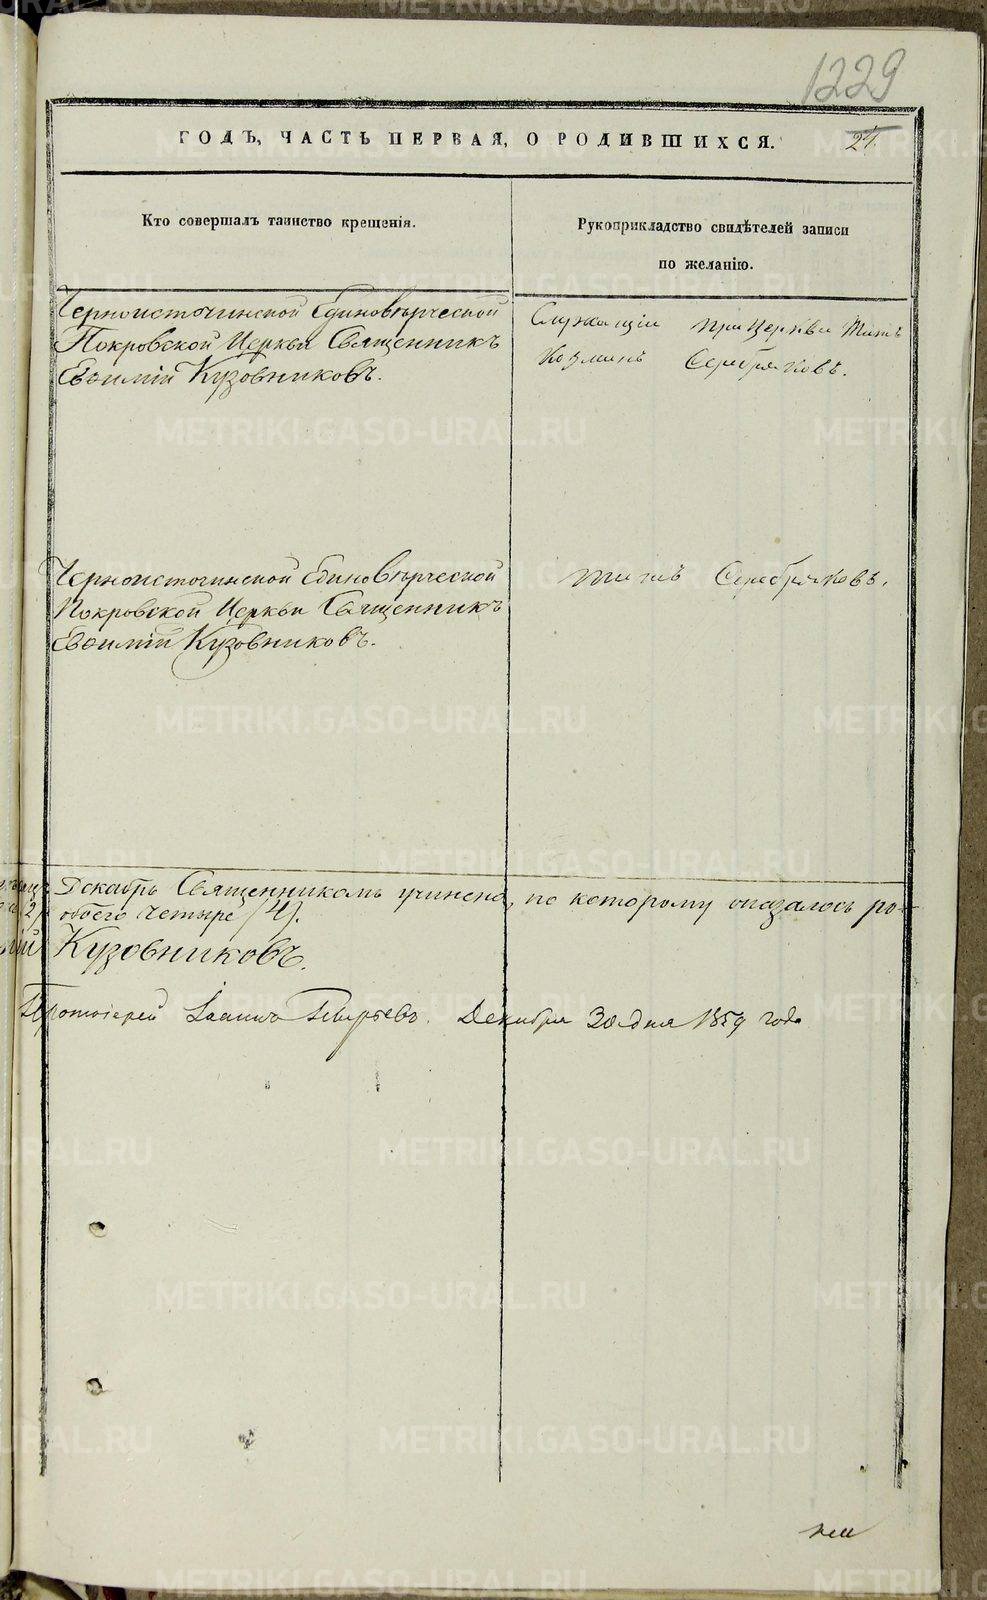 1229
ГОДЪ, ЧАСТЬ ПЕРВАЯ, О РОДИВШИХСЯ.
24.
Кто совершалъ таинство крещенія.
Рукоприкладство свидѣтелей записи
по желанію.
Черноисточинской Единовѣрческой
Покровской Церкви Священникъ
Евѳимій Кузовниковъ.
Служащій при Церкви Титъ
Козминъ Серебряковъ.
Черноисточинской Единовѣрческой
Покровской Церкви Священникъ
Евѳимій Кузовниковъ.
Титъ Серебряковъ.
Декабрь Священникомъ учинено, по которому оказалось ро-
обоего четыре /4/.
Кузовниковъ.
Протоіерей Іоаннъ Декабря 30 дня 1859 года
METRIKI.GASO-URAL.RU